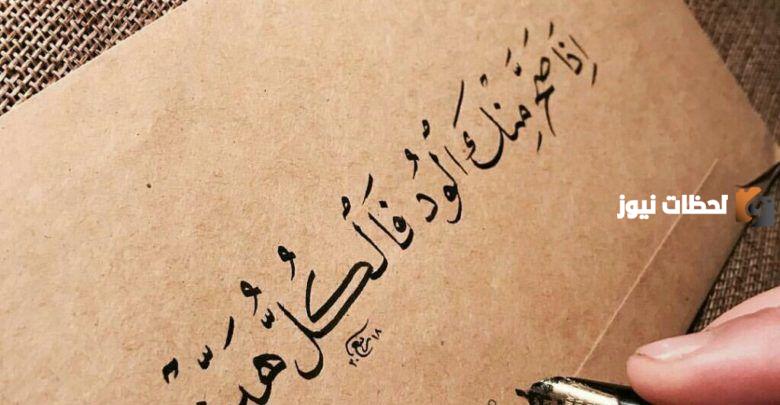 اِذَا صَحَّ مِنْكَ الْوُدُّ فَالْكُلُّ
لحظات نيوز